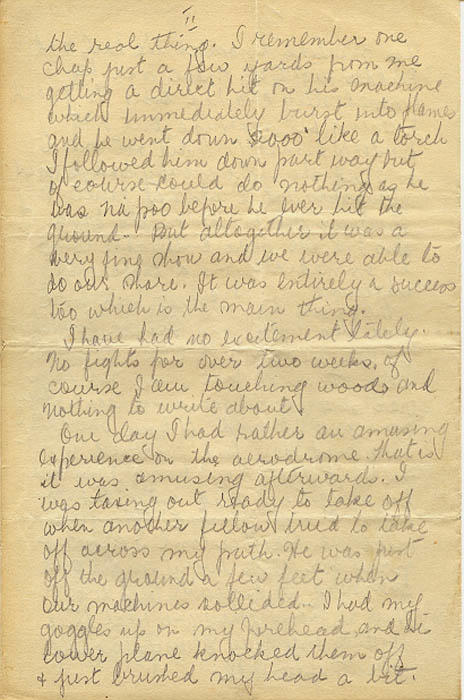 11
the real thing. I remember one
chap just a few yards from me
getting a direct hit on his machine
which immediately burst into flames
and he went down like a torch
I followed him down part way but
of course could do nothing as he
was na poo before he ever hit the
ground. But altogether it was a
very fine show and we were able to
do our share. It was entirely a success
too which is the main thing.
I have had no excitement lately.
No fights for over two weeks, of
course I am touching wood and
nothing to write about
One day I had rather an amusing
experience on the aerodrome. that is
it was amusing afterwards. I
was taxing out ready to take off
when another fellow tried to take
off across my path. He was just
off the ground a few feet when
our machines collided. I had my
goggles up on my forehead and his
lower plane knocked them off
& just brushed my head a bit.